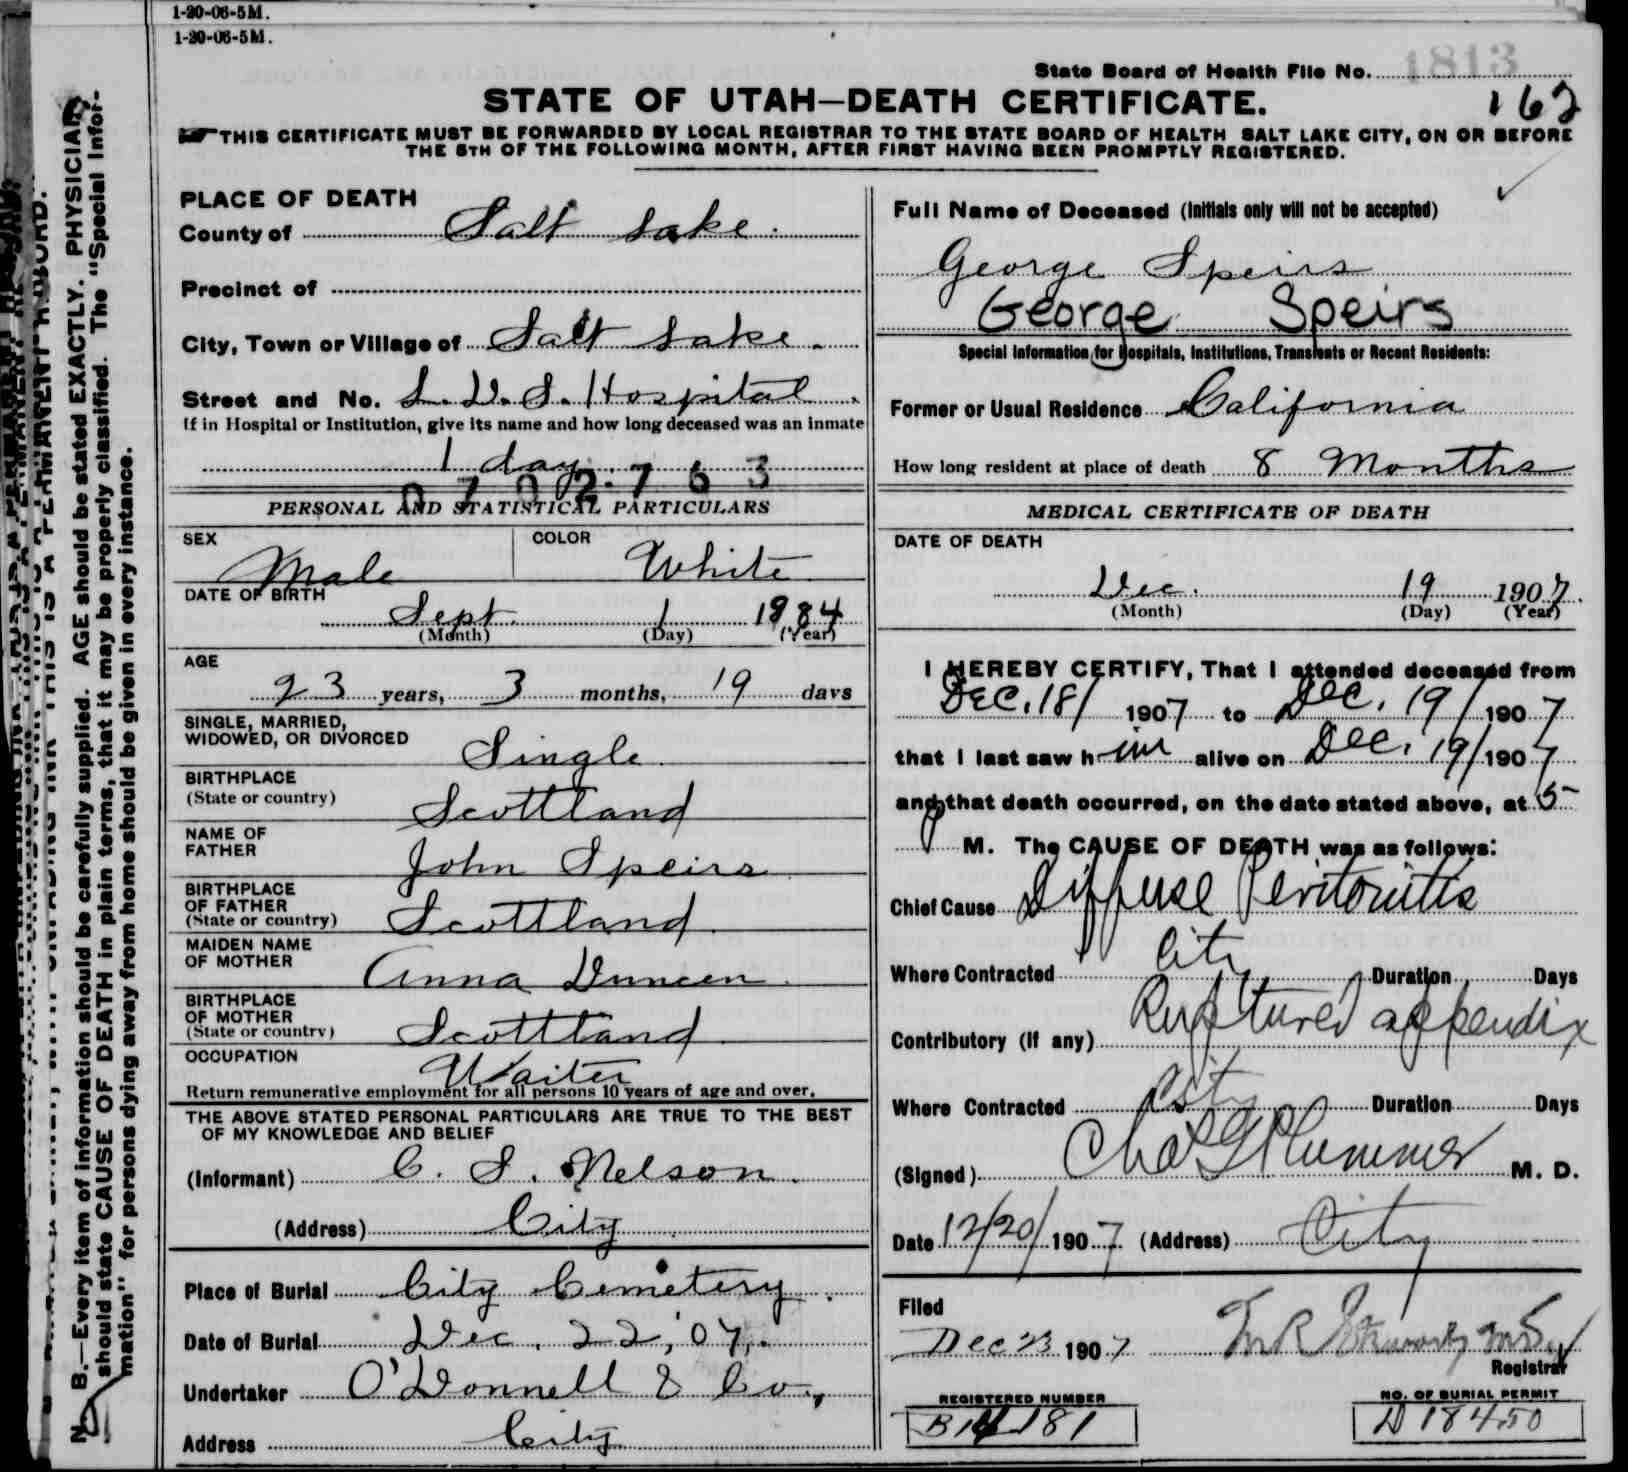 1-20-06-5M.
1-20-06-5M.
State Board of Health File No. 1813
STATE OF UTAH—DEATH CERTIFICATE.
162
THIS CERTIFICATE MUST BE FORWARDED BY LOCAL REGISTRAR TO THE STATE BOARD OF HEALTH SALT LAKE CITY, ON OR BEFORE
THE 5TH OF THE FOLLOWING MONTH, AFTER FIRST HAVING BEEN PROMPTLY REGISTERED.
N. B.—Every item of information should be carefully supplied. AGE should be stated EXACTLY. PHYSICIANS
should state CAUSE OF DEATH in plain terms, that it may be properly classified. The "Special Infor-
mation" for persons dying away from home should be given in every instance.
PLACE OF DEATH
County of Salt Lake.
Precinct of
City, Town or Village of Salt Lake.
Street and No. L. D. S. Hospital.
If in Hospital or Institution, give its name and how long deceased was an inmate
1 day.
0702763
PERSONAL AND STATISTICAL PARTICULARS
SEX Male
COLOR White
DATE OF BIRTH
Sept. 1 1884
(Month) (Day) (Year)
AGE
23 years, 3 months, 19 days
SINGLE, MARRIED,
WIDOWED, OR DIVORCED Single.
BIRTHPLACE
(State or country) Scottland
NAME OF
FATHER John Speirs
BIRTHPLACE
OF FATHER
(State or country) Scottland.
MAIDEN NAME
OF MOTHER Anna Duncen.
BIRTHPLACE
OF MOTHER
(State or country) Scottland.
OCCUPATION Waiter
Return remunerative employment for all persons 10 years of age and over.
THE ABOVE STATED PERSONAL PARTICULARS ARE TRUE TO THE BEST
OF MY KNOWLEDGE AND BELIEF
(Informant) C. S. Nelson.
(Address) City
Place of Burial City Cemetery.
Date of Burial Dec. 22, '07.
Undertaker O'Donnell & Co.,
Address City
Full Name of Deceased (Initials only will not be accepted)
George Speirs
George Speirs
Special Information for Hospitals, Institutions, Transients or Recent Residents:
Former or Usual Residence California
How long resident at place of death 8 Months
MEDICAL CERTIFICATE OF DEATH
DATE OF DEATH
Dec. 19 1907.
(Month) (Day) (Year)
I HEREBY CERTIFY, That I attended deceased from
Dec. 18/ 1907 to Dec. 19/ 1907
that I last saw him alive on Dec. 19/ 1907
and that death occurred, on the date stated above, at 5
P M. The CAUSE OF DEATH was as follows:
Chief Cause Diffuse Peritonitis
Where Contracted City Duration Days
Contributory (If any) Ruptured appendix
Where Contracted City Duration Days
(Signed) Chas G Plummer M. D.
Date 12/20/1907 (Address) City
Filed
Dec 23 1907
Registrar
REGISTERED NUMBER
NO. OF BURIAL PERMIT
D 18450